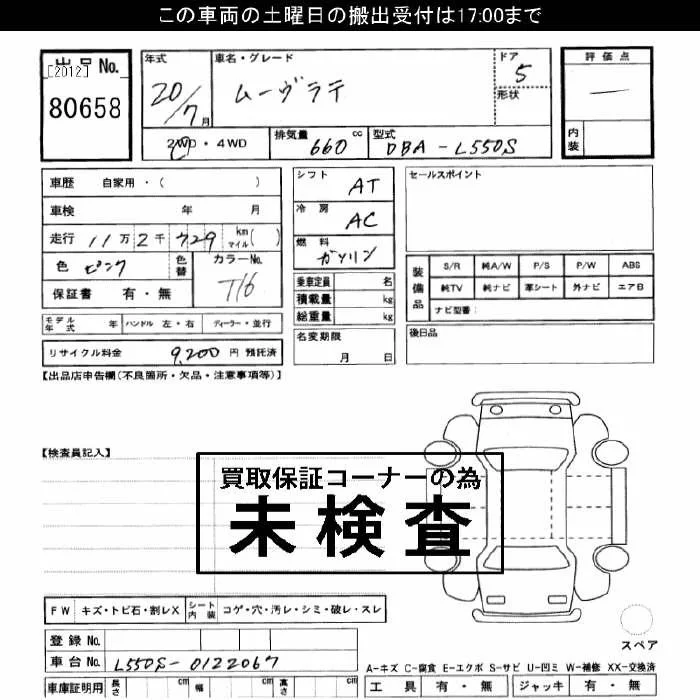 この車両の土曜日の搬出受付は17:00まで
出品No. [2012] 80658
年式 20/7月
車名・グレード ムーヴラテ
ドア 5
形状
評価点 —
内装
2WD・4WD
排気量 660 cc
型式 DBA-L550S
車歴 自家用・( )
車検 年 月
走行 11万2千729 km マイル( )
色 ピンク 色替 カラーNo. T16
保証書 有・無
シフト AT
冷房 AC
燃料 ガソリン
乗車定員 名
積載量 kg
総重量 kg
セールスポイント
装備品
S/R 純A/W P/S P/W ABS
純TV 純ナビ 革シート 外ナビ エアB
ナビ型番:
モデル年式 年 ハンドル 左・右 ディーラー・並行
名変期限 月 日
後日品
リサイクル料金 9,200 円 預託済
【出品店申告欄(不良箇所・欠品・注意事項等)】
【検査員記入】
買取保証コーナーの為
未検査
FW キズ・トビ石・割レX シート内装 コゲ・穴・汚レ・シミ・破レ・スレ
登録No.
車台No. L550S-0122067
車庫証明用 長さ cm 幅 cm 高さ cm
スペア
A-キズ C-腐食 E-エクボ S-サビ U-凹ミ W-補修 XX-交換済
工具 有・無 ジャッキ 有・無